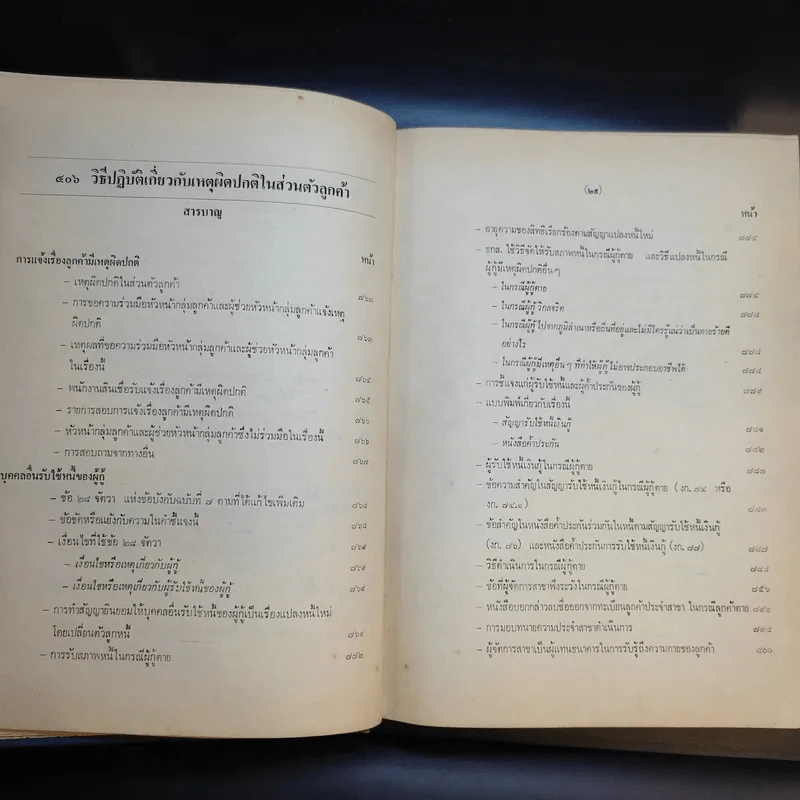 ๔๐๖ วิธีปฏิบัติเกี่ยวกับเหตุผิดปกติในส่วนตัวลูกค้า
สารบาญ
หน้า
การแจ้งเรื่องลูกค้ามีเหตุผิดปกติ
– เหตุผิดปกติในส่วนตัวลูกค้า ๗๖๓
– การขอความร่วมมือหัวหน้ากลุ่มลูกค้าและผู้ช่วยหัวหน้ากลุ่มลูกค้าแจ้งเหตุ
ผิดปกติ ๗๖๓
– เหตุผลที่ขอความร่วมมือหัวหน้ากลุ่มลูกค้าและผู้ช่วยหัวหน้ากลุ่มลูกค้า
ในเรื่องนี้ ๗๖๔
– พนักงานสินเชื่อรับแจ้งเรื่องลูกค้ามีเหตุผิดปกติ ๗๖๕
– รายการสอบการแจ้งเรื่องลูกค้ามีเหตุผิดปกติ ๗๖๖
– หัวหน้ากลุ่มลูกค้าและผู้ช่วยหัวหน้ากลุ่มลูกค้าซึ่งไม่ร่วมมือในเรื่องนี้ ๗๖๖
– การสอบถามจากทางอื่น ๗๖๗
บุคคลอื่นรับใช้หนี้ของผู้กู้
– ข้อ ๒๘ จัตวา แห่งข้อบังคับฉบับที่ ๗ ตามที่ได้แก้ไขเพิ่มเติม ๗๖๘
– ข้อขัดหรือแย้งกับความในคำชี้แจงนี้ ๗๖๘
– เงื่อนไขที่ใช้ข้อ ๒๘ จัตวา ๗๖๙
– เงื่อนไขหรือเหตุเกี่ยวกับผู้กู้ ๗๖๙
– เงื่อนไขหรือเหตุเกี่ยวกับผู้รับใช้หนี้ของผู้กู้ ๗๖๙
– การทำสัญญายินยอมให้บุคคลอื่นรับใช้หนี้ของผู้กู้เป็นเรื่องแปลงหนี้ใหม่
โดยเปลี่ยนตัวลูกหนี้ ๗๖๙
– การรับสภาพหนี้ในกรณีผู้กู้ตาย
(๒๙)
หน้า
– อายุความของสิทธิเรียกร้องตามสัญญาแปลงหนี้ใหม่
– ธกส. ใช้วิธีจัดให้รับสภาพหนี้ในกรณีผู้กู้ตาย และวิธีแปลงหนี้ในกรณี
ผู้กู้มีเหตุผิดปกติอื่น ๆ
– ในกรณีผู้กู้ตาย
– ในกรณีผู้กู้วิกลจริต
– ในกรณีผู้กู้ไปจากภูมิลำเนาหรือถิ่นที่อยู่และไม่มีใครรู้แน่ว่าเป็นตายร้ายดี
อย่างไร
– ในกรณีผู้กู้มีเหตุอื่น ๆ ที่ทำให้ผู้กู้ไม่อาจประกอบอาชีพได้
– การชี้แจงแก่ผู้รับใช้หนี้และผู้ค้ำประกันของผู้กู้
– แบบพิมพ์เกี่ยวกับเรื่องนี้
– สัญญารับใช้หนี้เงินกู้
– หนังสือค้ำประกัน
– ผู้รับใช้หนี้เงินกู้ในกรณีผู้กู้ตาย
– ข้อความสำคัญในสัญญารับใช้หนี้เงินกู้ในกรณีผู้กู้ตาย หรือ
– ข้อสำคัญในหนังสือค้ำประกันร่วมกันในหนี้ตามสัญญารับใช้หนี้เงินกู้
(งก. ๗๖) และหนังสือค้ำประกันการรับใช้หนี้เงินกู้ (งก. ๗๗)
– วิธีดำเนินการในกรณีผู้กู้ตาย
– ข้อที่ผู้จัดการสาขาพึงระวังในกรณีผู้กู้ตาย
– หนังสือบอกกล่าวลบชื่อออกจากทะเบียนลูกค้าประจำสาขา ในกรณีลูกค้าตาย
– การมอบทนายความประจำสาขาดำเนินการ
– ผู้จัดการสาขาเป็นผู้แทนธนาคารในการรับรู้ถึงความตายของลูกค้า